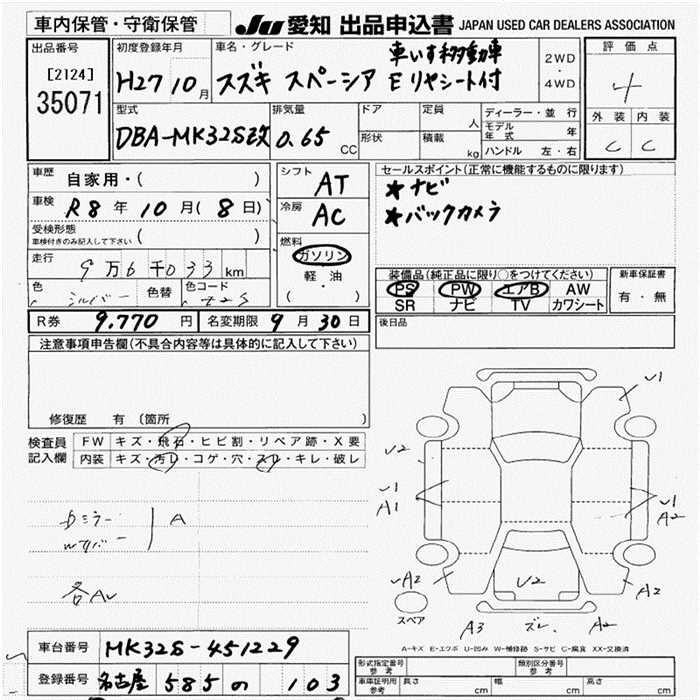 車内保管・守衛保管
JU 愛知 出品申込書 JAPAN USED CAR DEALERS ASSOCIATION
出品番号
[2124]
35071
初度登録年月
H27 10月
車名・グレード
車いす移動車
スズキ スペーシア E リヤシート付
2WD
・
4WD
評価点
4
外装 内装
C C
型式
DBA-MK32S改
排気量
0.65 CC
ドア
形状
定員 人
積載 kg
ディーラー・並行
モデル年式 年
ハンドル 左・右
車歴 自家用・( )
車検 R8年10月(8日)
受検形態
車検付きのみ記入して下さい ( )
走行 9万6千033km
色 シルバー 色替 色コード Z2S
シフト AT
冷房 AC
燃料
ガソリン
軽・油
( )
セールスポイント(正常に機能するものに限ります)
★ナビ
★バックカメラ
装備品(純正品に限り○をつけてください)
PS PW エアB AW
SR ナビ TV カワシート
新車保証書
有・無
後日品
R券 9.770円 名変期限 9月30日
注意事項申告欄(不具合内容等は具体的に記入して下さい)
修復歴 有 (箇所 )
検査員記入欄
FW キズ・飛石・ヒビ割・リペア跡・X要
内装 キズ・汚レ・コゲ・穴・スレ・キレ・破レ
Dミラー
Wカバー
A
各AU
U1
U2
U1
A1
U1
A2
UA2
U2
A2
スペア
A3 ズレ. A2
A-キズ E-エクボ U-凹み W-補修跡 S-サビ C-腐食 XX-交換済
車台番号 MK32S-451229
登録番号 名古屋 585 の 103
形式指定番号
参考
類別区分番号
参考
車庫証明用
参考
長さ cm 幅 cm 高さ cm